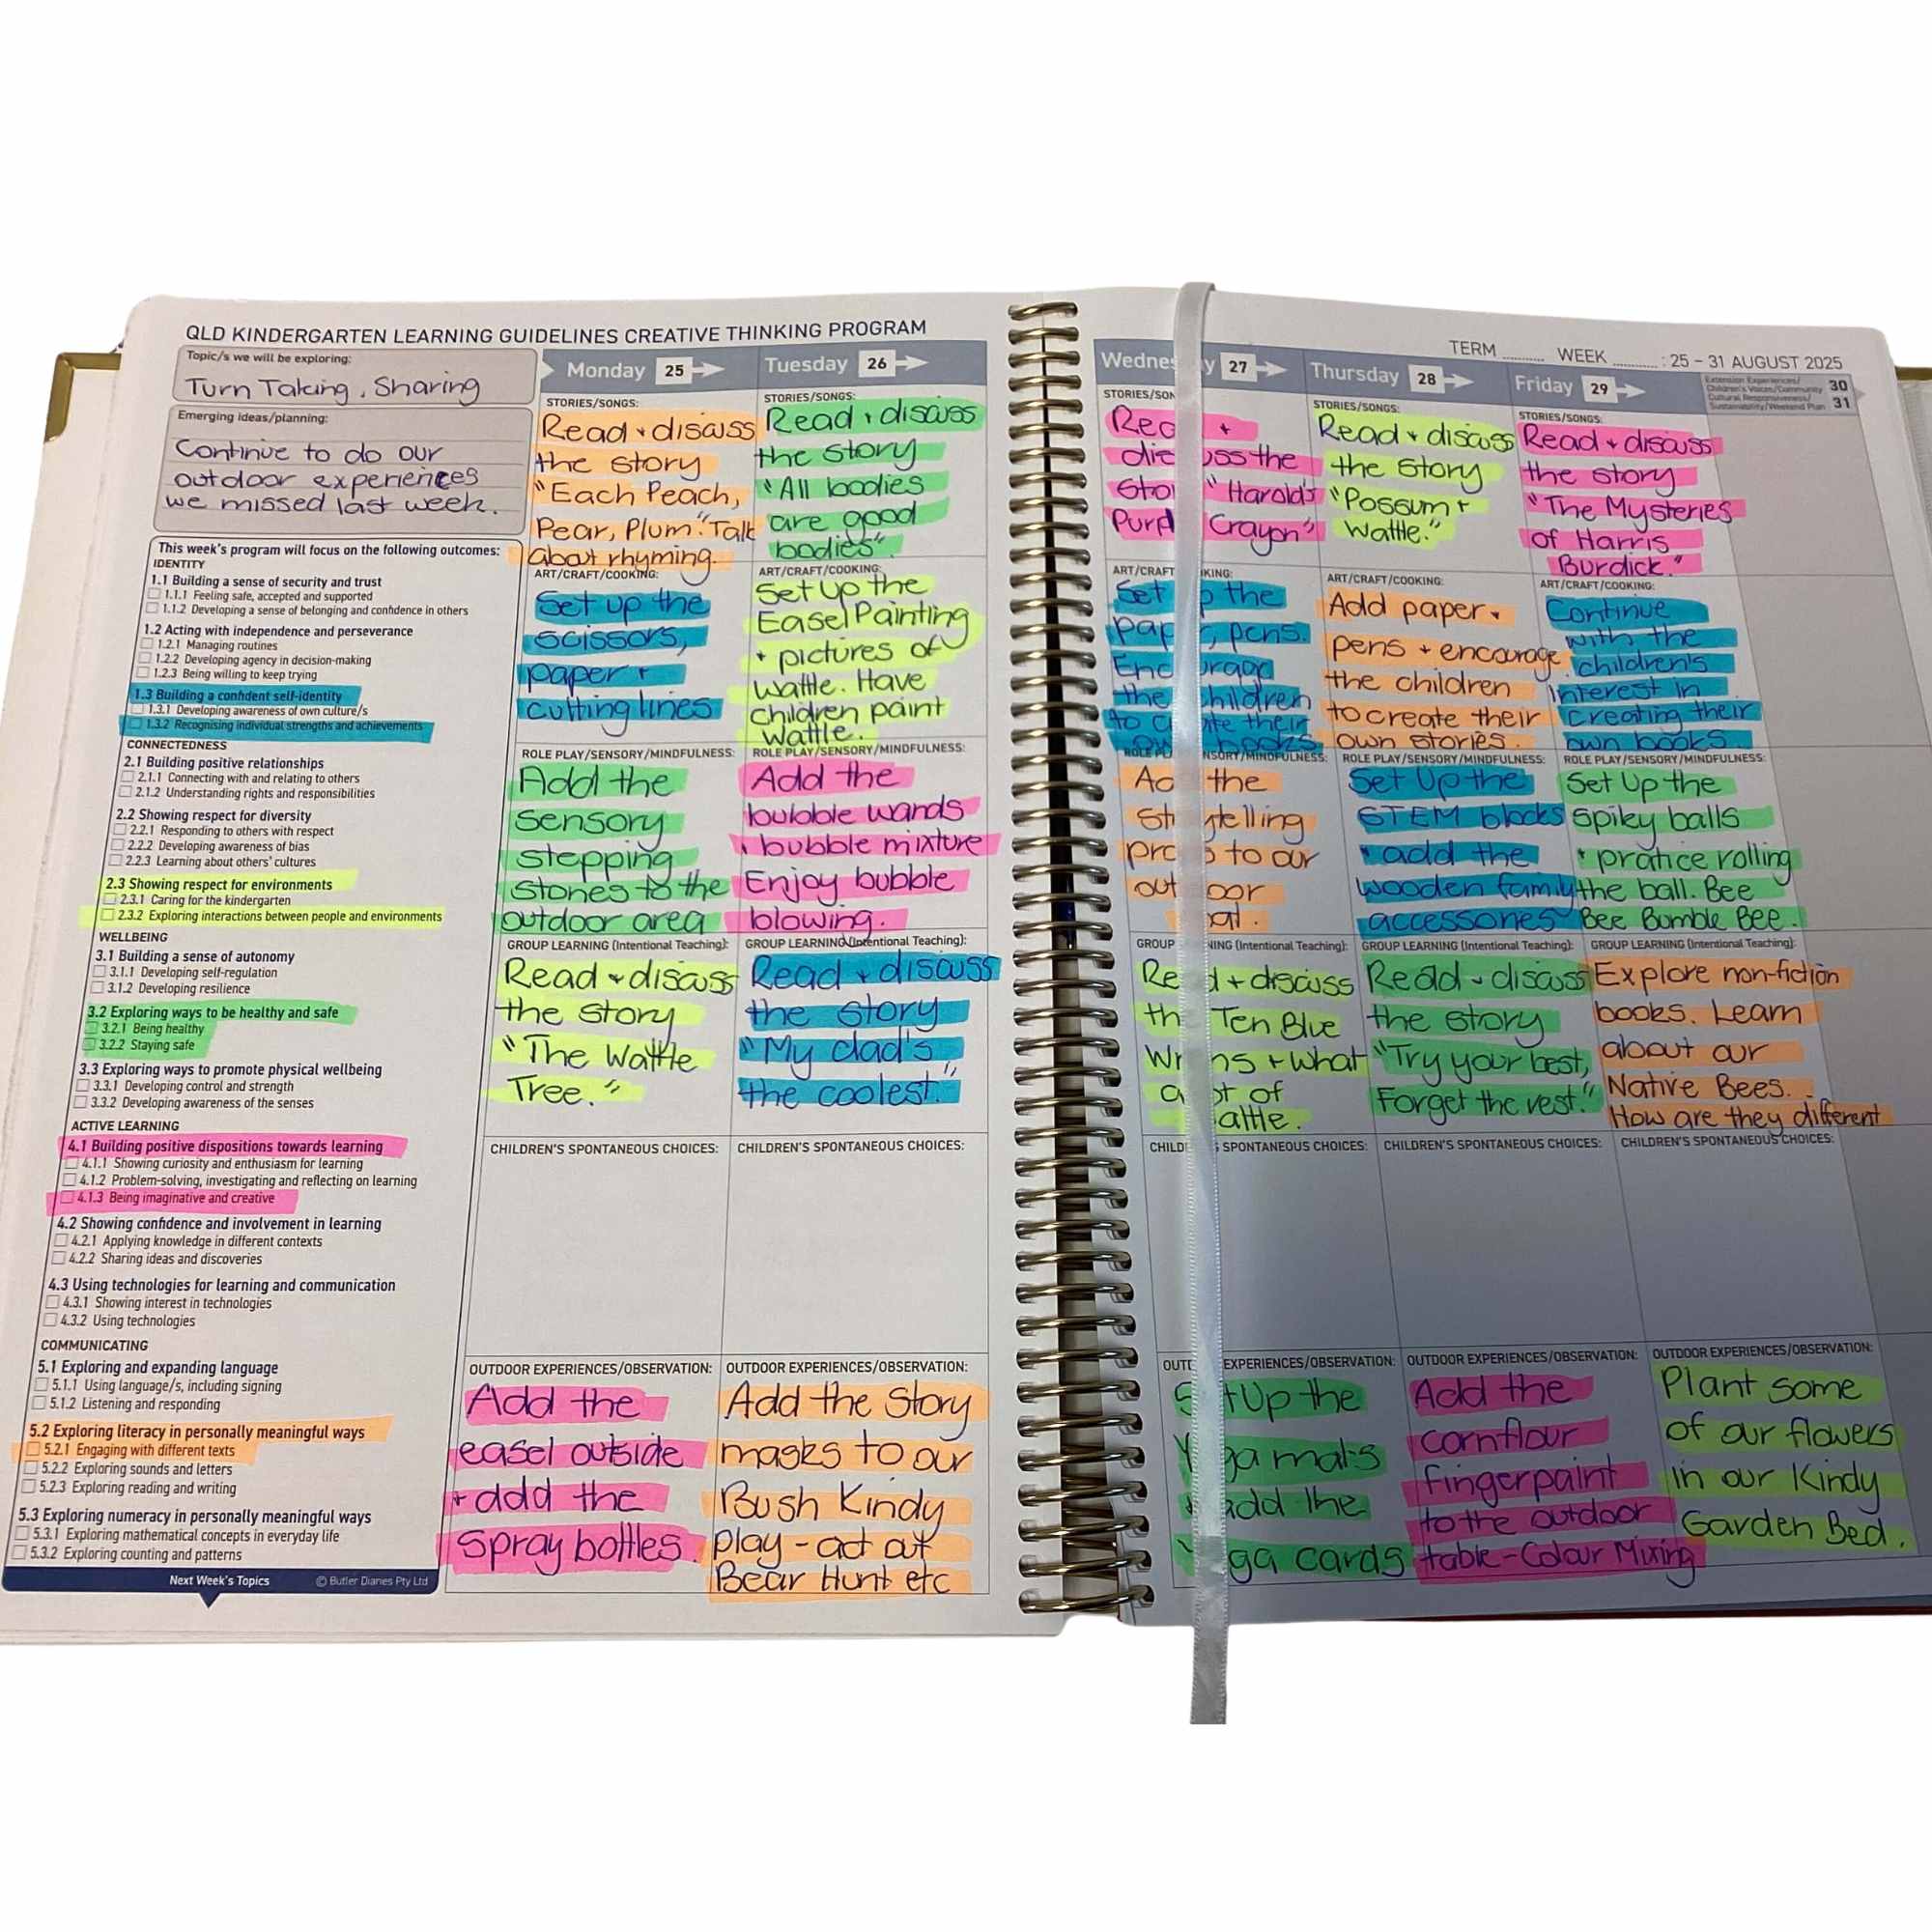 QLD KINDERGARTEN LEARNING GUIDELINES CREATIVE THINKING PROGRAM
Topic/s we will be exploring:
Turn Taking, Sharing
Emerging ideas/planning:
Continue to do our
outdoor experiences
we missed last week.
This week's program will focus on the following outcomes:
IDENTITY
1.1 Building a sense of security and trust
1.1.1 Feeling safe, accepted and supported
1.1.2 Developing a sense of belonging and confidence in others
1.2 Acting with independence and perseverance
1.2.1 Managing routines
1.2.2 Developing agency in decision-making
1.2.3 Being willing to keep trying
1.3 Building a confident self-identity
1.3.1 Developing awareness of own culture/s
1.3.2 Recognising individual strengths and achievements
CONNECTEDNESS
2.1 Building positive relationships
2.1.1 Connecting with and relating to others
2.1.2 Understanding rights and responsibilities
2.2 Showing respect for diversity
2.2.1 Responding to others with respect
2.2.2 Developing awareness of bias
2.2.3 Learning about others' cultures
2.3 Showing respect for environments
2.3.1 Caring for the kindergarten
2.3.2 Exploring interactions between people and environments
WELLBEING
3.1 Building a sense of autonomy
3.1.1 Developing self-regulation
3.1.2 Developing resilience
3.2 Exploring ways to be healthy and safe
3.2.1 Being healthy
3.2.2 Staying safe
3.3 Exploring ways to promote physical wellbeing
3.3.1 Developing control and strength
3.3.2 Developing awareness of the senses
ACTIVE LEARNING
4.1 Building positive dispositions towards learning
4.1.1 Showing curiosity and enthusiasm for learning
4.1.2 Problem-solving, investigating and reflecting on learning
4.1.3 Being imaginative and creative
4.2 Showing confidence and involvement in learning
4.2.1 Applying knowledge in different contexts
4.2.2 Sharing ideas and discoveries
4.3 Using technologies for learning and communication
4.3.1 Showing interest in technologies
4.3.2 Using technologies
COMMUNICATING
5.1 Exploring and expanding language
5.1.1 Using language/s, including signing
5.1.2 Listening and responding
5.2 Exploring literacy in personally meaningful ways
5.2.1 Engaging with different texts
5.2.2 Exploring sounds and letters
5.2.3 Exploring reading and writing
5.3 Exploring numeracy in personally meaningful ways
5.3.1 Exploring mathematical concepts in everyday life
5.3.2 Exploring counting and patterns
Next Week's Topics
© Butler Diaries Pty Ltd
Monday 25
STORIES/SONGS:
Read + discuss
the story
"Each Peach,
Pear, Plum." Talk
about rhyming.
ART/CRAFT/COOKING:
Set up the
scissors,
paper +
cutting lines
ROLE PLAY/SENSORY/MINDFULNESS:
Add the
sensory
stepping
stones to the
outdoor area
GROUP LEARNING (Intentional Teaching):
Read + discuss
the story
"The Wattle
Tree."
CHILDREN'S SPONTANEOUS CHOICES:
OUTDOOR EXPERIENCES/OBSERVATION:
Add the
easel outside
+ add the
Spray bottles.
Tuesday 26
STORIES/SONGS:
Read + discuss
the story
"All bodies
are good
bodies".
ART/CRAFT/COOKING:
Set up the
Easel Painting
+ pictures of
wattle. Have
children paint
wattle.
ROLE PLAY/SENSORY/MINDFULNESS:
Add the
bubble wands
+ bubble mixture
Enjoy bubble
blowing.
GROUP LEARNING (Intentional Teaching):
Read + discuss
the story
"My dad's
the coolest."
CHILDREN'S SPONTANEOUS CHOICES:
OUTDOOR EXPERIENCES/OBSERVATION:
Add the Story
masks to our
Bush Kindy
Play - act out
Bear Hunt etc
TERM .......... WEEK .......... : 25 – 31 AUGUST 2025
Wednes y 27
STORIES/SON
Rea +
disc uss the
Sto "Harold's
Purp Crayon"
ART/CRAFT KING:
Set p the
pap , pens.
Enc urage
the children
to c te their
own books.
ROLE PL NSORY/MINDFULNESS:
Ad the
st ytelling
pro s to our
out oor
al.
GROUP NING (Intentional Teaching):
Re d + discuss
th Ten Blue
Wr ns + what
a ot of
attle.
CHILD S SPONTANEOUS CHOICES:
OUTD EXPERIENCES/OBSERVATION:
S t Up the
Y ga mats
+ add the
Y ga cards
Thursday 28
STORIES/SONGS:
Read + discuss
the story
"Possum +
Wattle."
ART/CRAFT/COOKING:
Add paper +
pens + encourage
the children
to create their
own stories.
ROLE PLAY/SENSORY/MINDFULNESS:
Set Up the
STEM blocks
+ add the
wooden family
accessories
GROUP LEARNING (Intentional Teaching):
Read + discuss
the story
"Try your best,
Forget the rest."
CHILDREN'S SPONTANEOUS CHOICES:
OUTDOOR EXPERIENCES/OBSERVATION:
Add the
cornflour
fingerpaint
to the outdoor
table - Colour Mixing
Friday 29
STORIES/SONGS:
Read + discuss
the story
"The Mysteries
of Harris
Burdick."
ART/CRAFT/COOKING:
Continue
with the
children's
interest in
creating their
own books.
ROLE PLAY/SENSORY/MINDFULNESS:
Set Up the
Spiky balls
+ pratice rolling
the ball. Bee
Bee Bumble Bee.
GROUP LEARNING (Intentional Teaching):
Explore non-fiction
books. Learn
about our
Native Bees.
How are they different
CHILDREN'S SPONTANEOUS CHOICES:
OUTDOOR EXPERIENCES/OBSERVATION:
Plant some
of our flowers
in our Kindy
Garden Bed.
Extension Experiences/
Children's Voices/Community
Cultural Responsiveness/
Sustainability/Weekend Plan
30
31